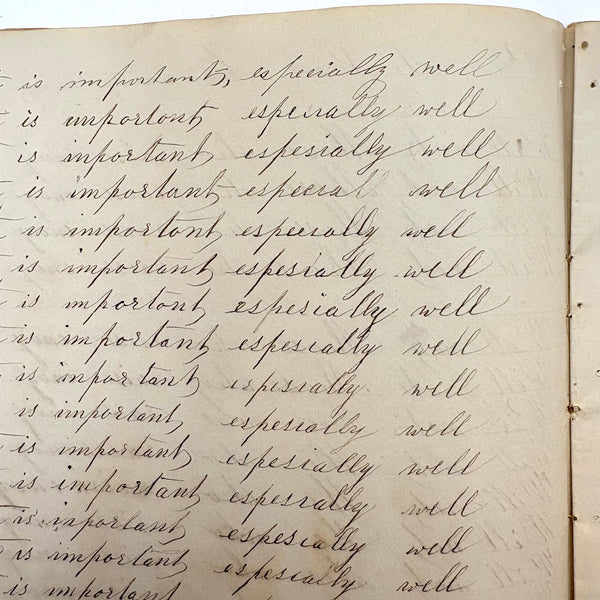 is important, especially well
is important especially well
is inportant espesially well
is important especial well
is important especially well
is important espesially well
is important espesially well
is important espesially well
is important espesially well
is important espesially well
is important espesially well
is important espesially well
is important espesially well
is important espesially well
is important well